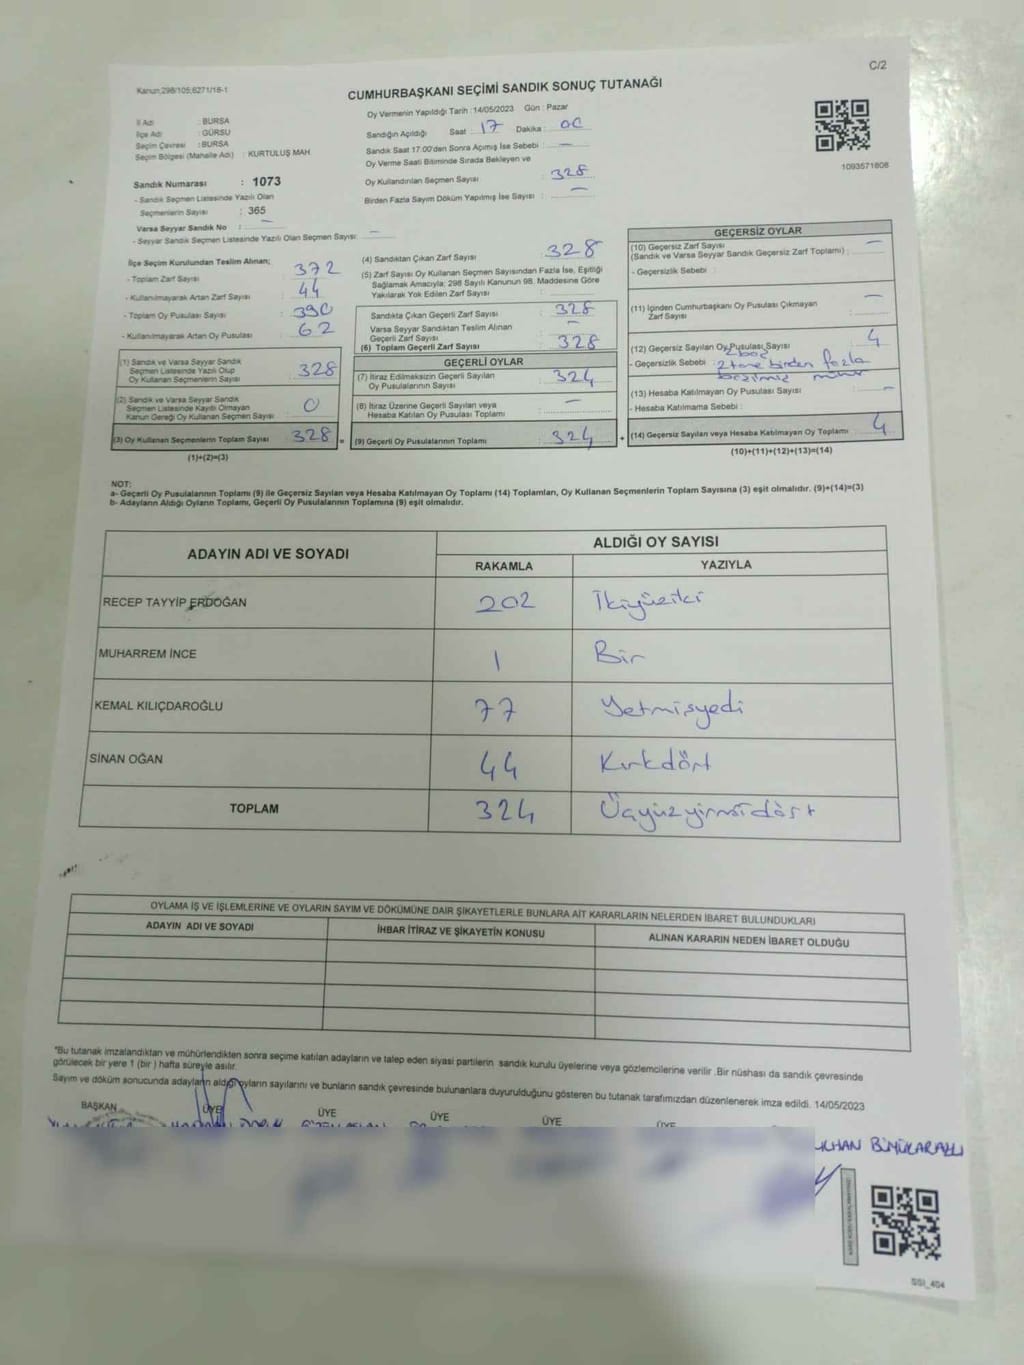 C/2
Kanun,298/105;6271/16-1
CUMHURBAŞKANI SEÇİMİ SANDIK SONUÇ TUTANAĞI
İl Adı : BURSA
İlçe Adı : GÜRSU
Seçim Çevresi : BURSA
Seçim Bölgesi (Mahalle Adı) : KURTULUŞ MAH.
Oy Vermenin Yapıldığı Tarih : 14/05/2023 Gün : Pazar
Sandığın Açıldığı Saat : 17 Dakika : 00
Sandık Saat 17.00'den Sonra Açılmış İse Sebebi : —
Oy Verme Saati Bitiminde Sırada Bekleyen ve
Oy Kullandırılan Seçmen Sayısı : 328
Birden Fazla Sayım Döküm Yapılmış İse Sayısı : —
1093571808
Sandık Numarası : 1073
- Sandık Seçmen Listesinde Yazılı Olan
Seçmenlerin Sayısı : 365
Varsa Seyyar Sandık No : —
- Seyyar Sandık Seçmen Listesinde Yazılı Olan Seçmen Sayısı: —
İlçe Seçim Kurulundan Teslim Alınan;
- Toplam Zarf Sayısı : 372
- Kullanılmayarak Artan Zarf Sayısı : 44
- Toplam Oy Pusulası Sayısı : 390
- Kullanılmayarak Artan Oy Pusulası : 62
(1) Sandık ve Varsa Seyyar Sandık
Seçmen Listesinde Yazılı Olup
Oy Kullanan Seçmenlerin Sayısı : 328
(2) Sandık ve Varsa Seyyar Sandık
Seçmen Listesinde Kayıtlı Olmayan
Kanun Gereği Oy Kullanan Seçmen Sayısı : 0
(3) Oy Kullanan Seçmenlerin Toplam Sayısı : 328
(1)+(2)=(3)
(4) Sandıktan Çıkan Zarf Sayısı : 328
(5) Zarf Sayısı Oy Kullanan Seçmen Sayısından Fazla İse, Eşitliği
Sağlamak Amacıyla; 298 Sayılı Kanunun 98. Maddesine Göre
Yakılarak Yok Edilen Zarf Sayısı :
Sandıkta Çıkan Geçerli Zarf Sayısı : 328
Varsa Seyyar Sandıktan Teslim Alınan
Geçerli Zarf Sayısı : —
(6) Toplam Geçerli Zarf Sayısı : 328
GEÇERLİ OYLAR
(7) İtiraz Edilmeksizin Geçerli Sayılan
Oy Pusulalarının Sayısı : 324
(8) İtiraz Üzerine Geçerli Sayılan veya
Hesaba Katılan Oy Pusulası Toplamı : —
(9) Geçerli Oy Pusulalarının Toplamı : 324
GEÇERSİZ OYLAR
(10) Geçersiz Zarf Sayısı
(Sandık ve Varsa Seyyar Sandık Geçersiz Zarf Toplamı) : —
- Geçersizlik Sebebi :
(11) İçinden Cumhurbaşkanı Oy Pusulası Çıkmayan
Zarf Sayısı : —
(12) Geçersiz Sayılan Oy Pusulası Sayısı : 4
2 boş
- Geçersizlik Sebebi : 2 tane birden fazla
mühür
(13) Hesaba Katılmayan Oy Pusulası Sayısı : —
- Hesaba Katılmama Sebebi :
(14) Geçersiz Sayılan veya Hesaba Katılmayan Oy Toplamı : 4
(10)+(11)+(12)+(13)=(14)
NOT:
a- Geçerli Oy Pusulalarının Toplamı (9) ile Geçersiz Sayılan veya Hesaba Katılmayan Oy Toplamı (14) Toplamları, Oy Kullanan Seçmenlerin Toplam Sayısına (3) eşit olmalıdır. (9)+(14)=(3)
b- Adayların Aldığı Oyların Toplamı, Geçerli Oy Pusulalarının Toplamına (9) eşit olmalıdır.
ADAYIN ADI VE SOYADI ALDIĞI OY SAYISI
RAKAMLA YAZIYLA
RECEP TAYYİP ERDOĞAN 202 İkiyüziki
MUHARREM İNCE 1 Bir
KEMAL KILIÇDAROĞLU 77 Yetmişyedi
SİNAN OĞAN 44 Kırkdört
TOPLAM 324 Üçyüzyirmidört
OYLAMA İŞ VE İŞLEMLERİNE VE OYLARIN SAYIM VE DÖKÜMÜNE DAİR ŞİKAYETLERLE BUNLARA AİT KARARLARIN NELERDEN İBARET BULUNDUKLARI
ADAYIN ADI VE SOYADI İHBAR İTİRAZ VE ŞİKAYETİN KONUSU ALINAN KARARIN NEDEN İBARET OLDUĞU
*Bu tutanak imzalandıktan ve mühürlendikten sonra seçime katılan adayların ve talep eden siyasi partilerin sandık kurulu üyelerine veya gözlemcilerine verilir .Bir nüshası da sandık çevresinde
görülecek bir yere 1 (bir ) hafta süreyle asılır.
Sayım ve döküm sonucunda adayların aldığı oyların sayılarını ve bunların sandık çevresinde bulunanlara duyurulduğunu gösteren bu tutanak tarafımızdan düzenlenerek imza edildi. 14/05/2023
BAŞKAN ÜYE ÜYE ÜYE ÜYE ÜYE
SSI_404